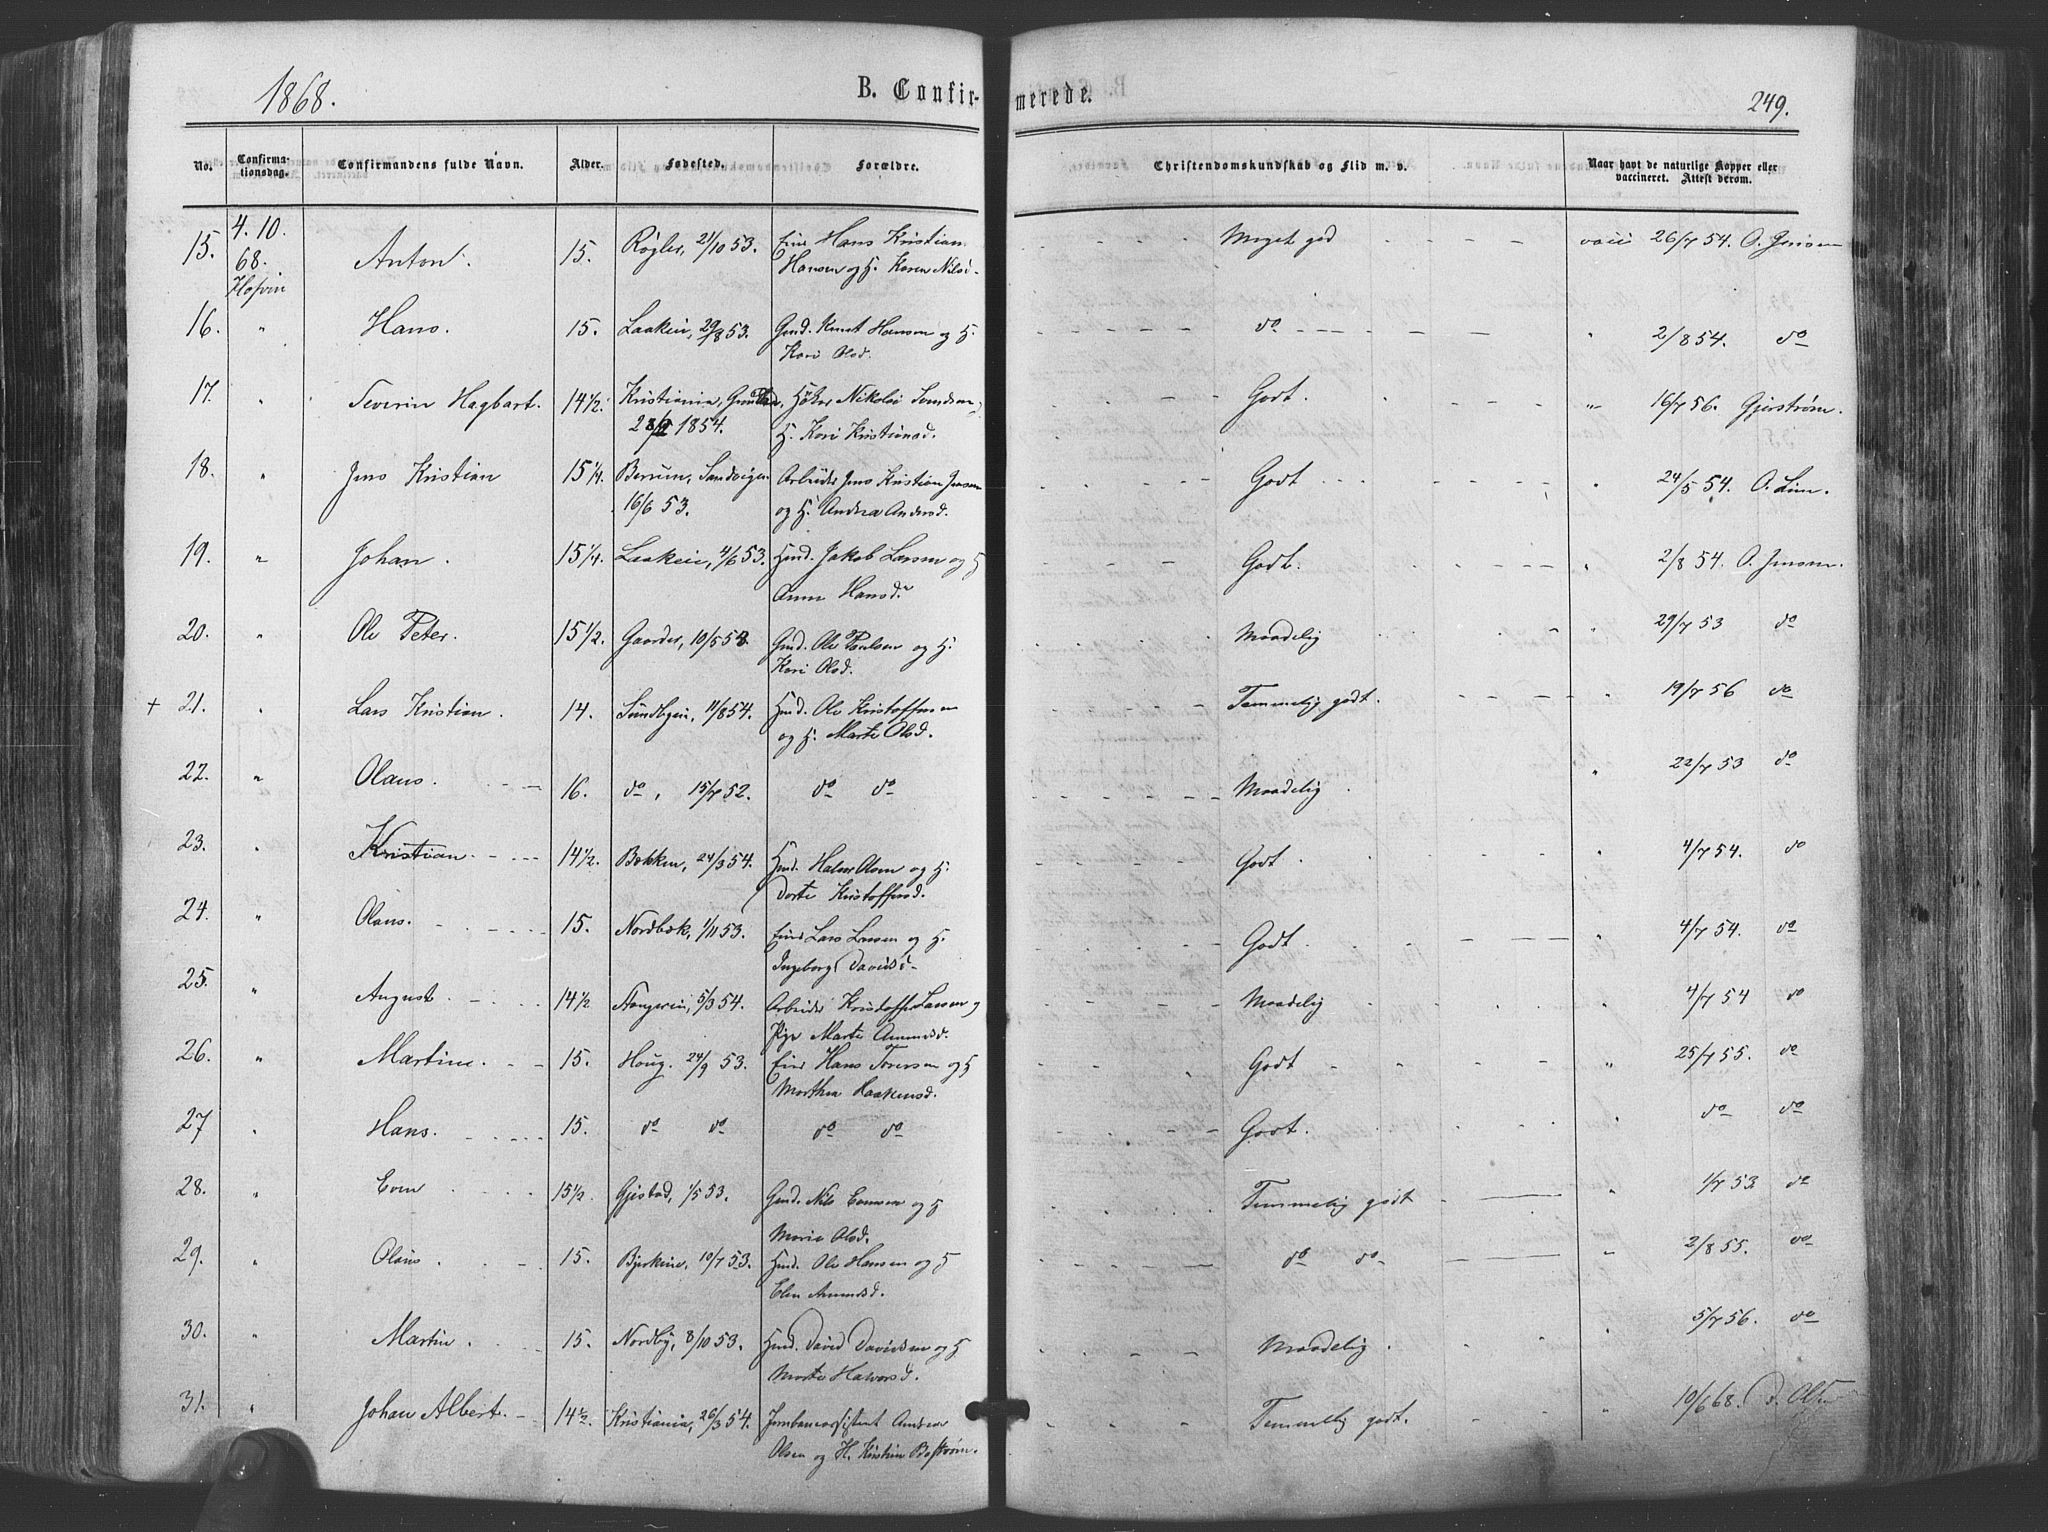 1868.
B. Confirmerede.
249.
No.
Confirmationsdag.
Confirmandens fulde Navn.
Alder.
Fødested.
Forældre.
Christendomskundskab og Flid m. v.
Naar havt de naturlige Kopper eller vaccineret. Attest derom.
15. 4. 10. 68. Hofvin Anton. 15. Røgler, 21/10 53. Eier Hans Kristian Meget god vacc 26/7 54. O. Jensen
Hansen og H. Karen Nilsd.
16. " Hans. 15. Laakei, 29/8 53. Gmd. Knut Hansen og H. do " 2/8 54. do
Kari Olsd.
17. " Severin Hagbart. 14 1/2. Kristiania, Høker Nikolai Godt. " 16/7 56. Gjerstrøm.
1854. H. Kari Kristiansd.
18. " Jens Kristian 15 1/4 Berrum, Sandvigen Arbeider Jens Kristian Jensen Godt " 24/5 54. O. Lim.
16/6 53. og H. Andrea Andersd.
19. " Johan. 15 1/4. Laakei, 4/6 53. Hmd. Jakob Larsen og H Godt. " 2/8 54. O. Jensen.
Anne Hansd.
20. " Ole Peter. 15 1/2. Gaarder, 10/5 53. Gmd. Ole Paulsen og H. Maadelig 29/7 53 do
Kari Olsd.
+ 21. " Lars Kristian. 14. Sundbyei, 11/8 54. Hmd. Ole Kristoffersen Temmelig godt. " 19/7 56 do
og H. Marte Olsd.
22. " Olaus. 16. do, 15/7 52. do do Maadelig. " 22/7 53 do
23. " Kristian. 14 1/2. Bekken, 24/3 54. Hmd. Halvor Olsen og H. Godt " 4/7 54. do
Dorte Kristoffersd.
24. " Olaus. 15. Nordbæk, 1/11 53. Eier Lars Larsen og H. Godt. " 4/7 54. do
Ingeborg Davidsd.
25. " August. 14 1/2 5/3 54. Arbeider Kristoffer Larsen og Maadelig " 4/7 54 do
Pige Marte Amundsd.
26. " Martin. 15. Houg. 24/9 53. Eier Hans Toresen og H Godt " 25/7 55. do
Marthea Haakensd.
27 " Hans. 15. do do do do Godt. do do
28. " Even 15 1/2. Gjestad, 1/5 53. Gmd. Nils Evensen og H Temmelig godt " 1/7 53 do
Marie Olsd.
29. " Olaus. 15. Bjerkeie, 10/7 53. Hmd. Ole Hansen og H do do " 2/8 55. do
Elen Amundsd.
30. " Martin. 15. Nordby, 8/10 53. Hmd. David Davidsen og H Maadelig. " 5/7 56. do
Marte Halvorsd.
31. " Johan Albert. 14 1/2. Kristiania, 26/3 54. Andreas Temmelig godt. 10/6 68.
Olsen og H. Kristin Bostrøm.